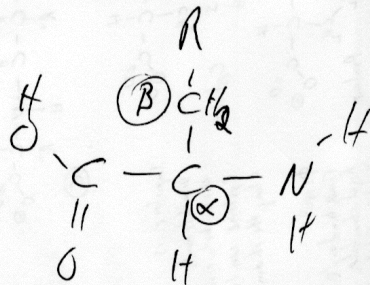 R
β CH2
H
O C — C α — N H
|| H
O H